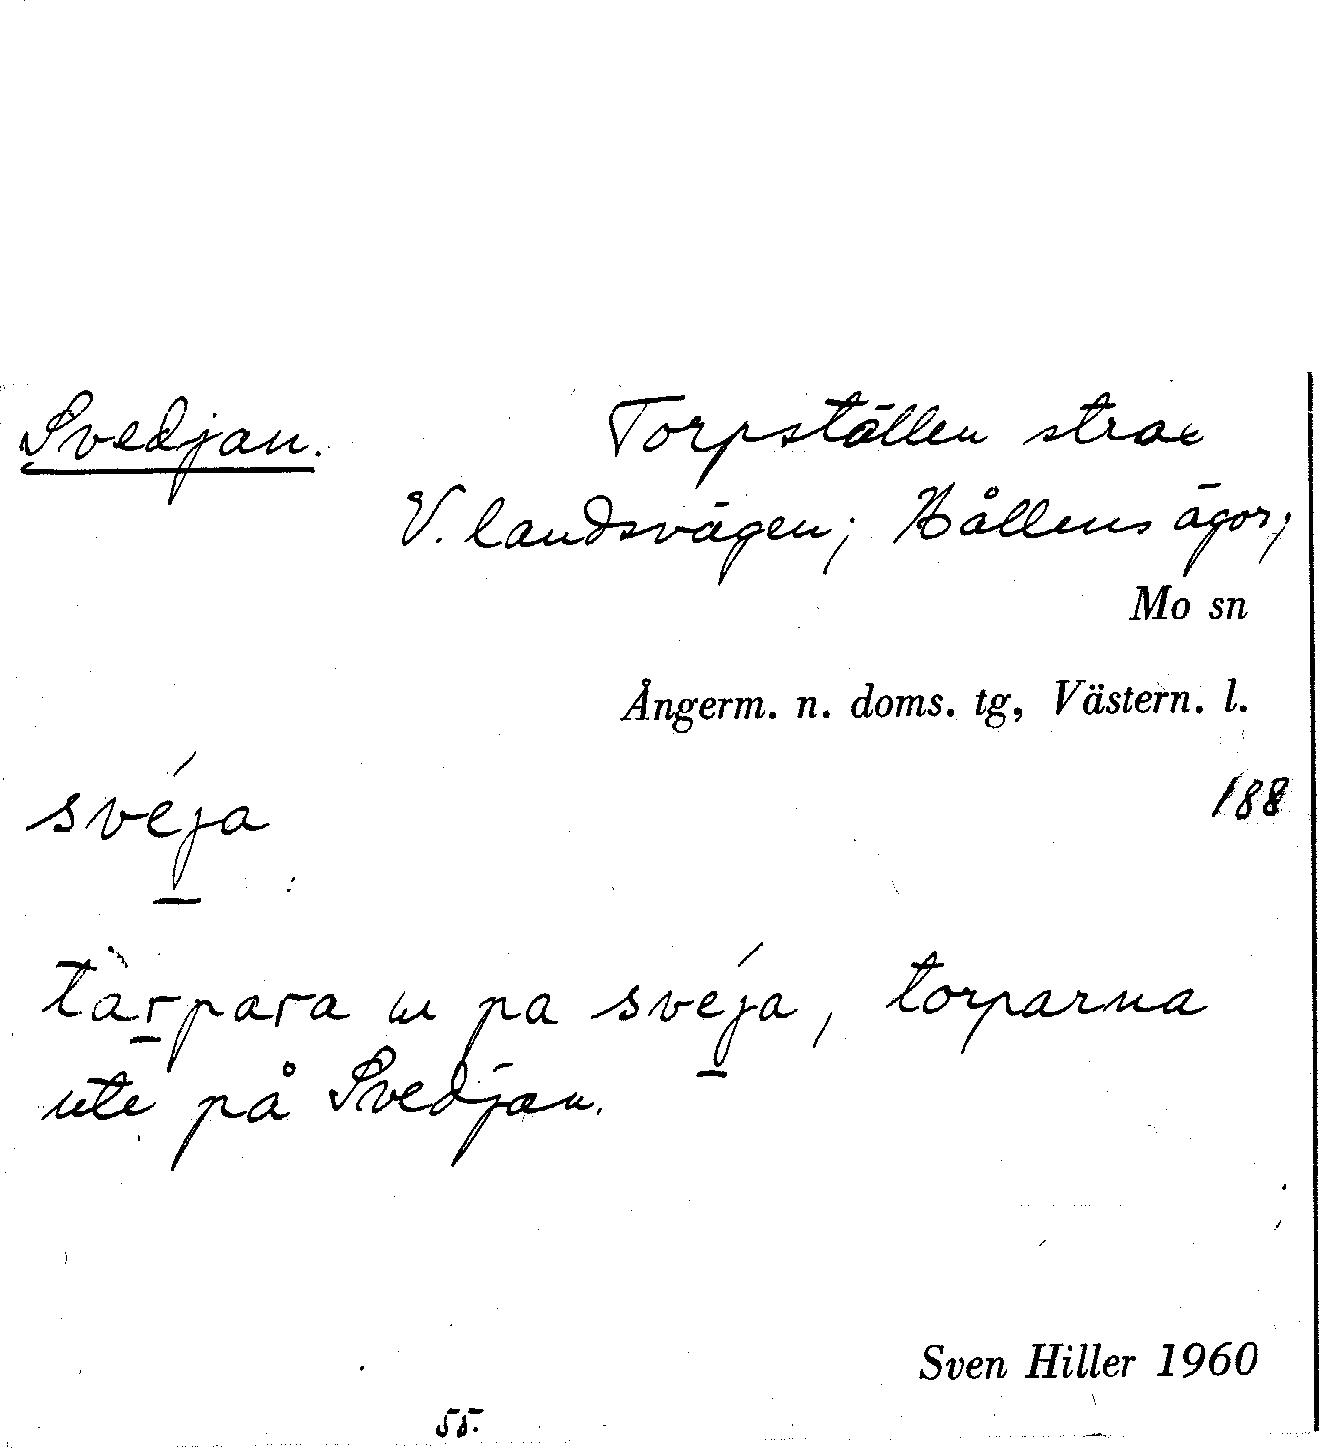 Svedjan. Torpställen strax
V. landsvägen; Hållens ägor;
Mo sn
Ångerm. n. doms. tg, Västern. l.
svéja 188
tàrpara ɯ pa svéja, torparna
ute på Svedjan.
Sven Hiller 1960
55.